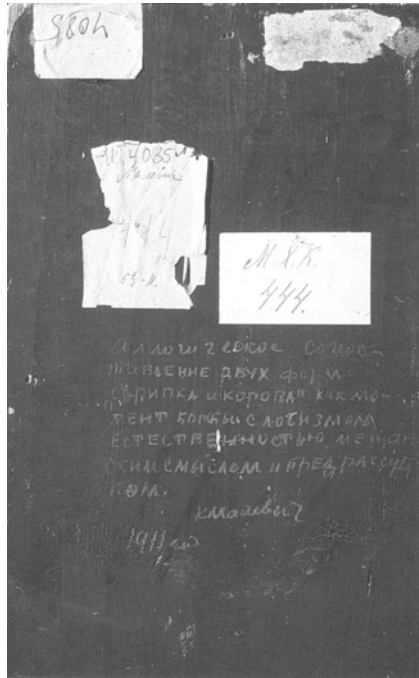 4085
№ 4085
Малевич
М.Х.К.
444.
Аллогическое сопос-
тавление двух форм
„скрипка и корова" как мо-
мент борьбы с логизмом
естественностью мещан
ским смыслом и предрассуд
ком.
КМалевич
1911 год